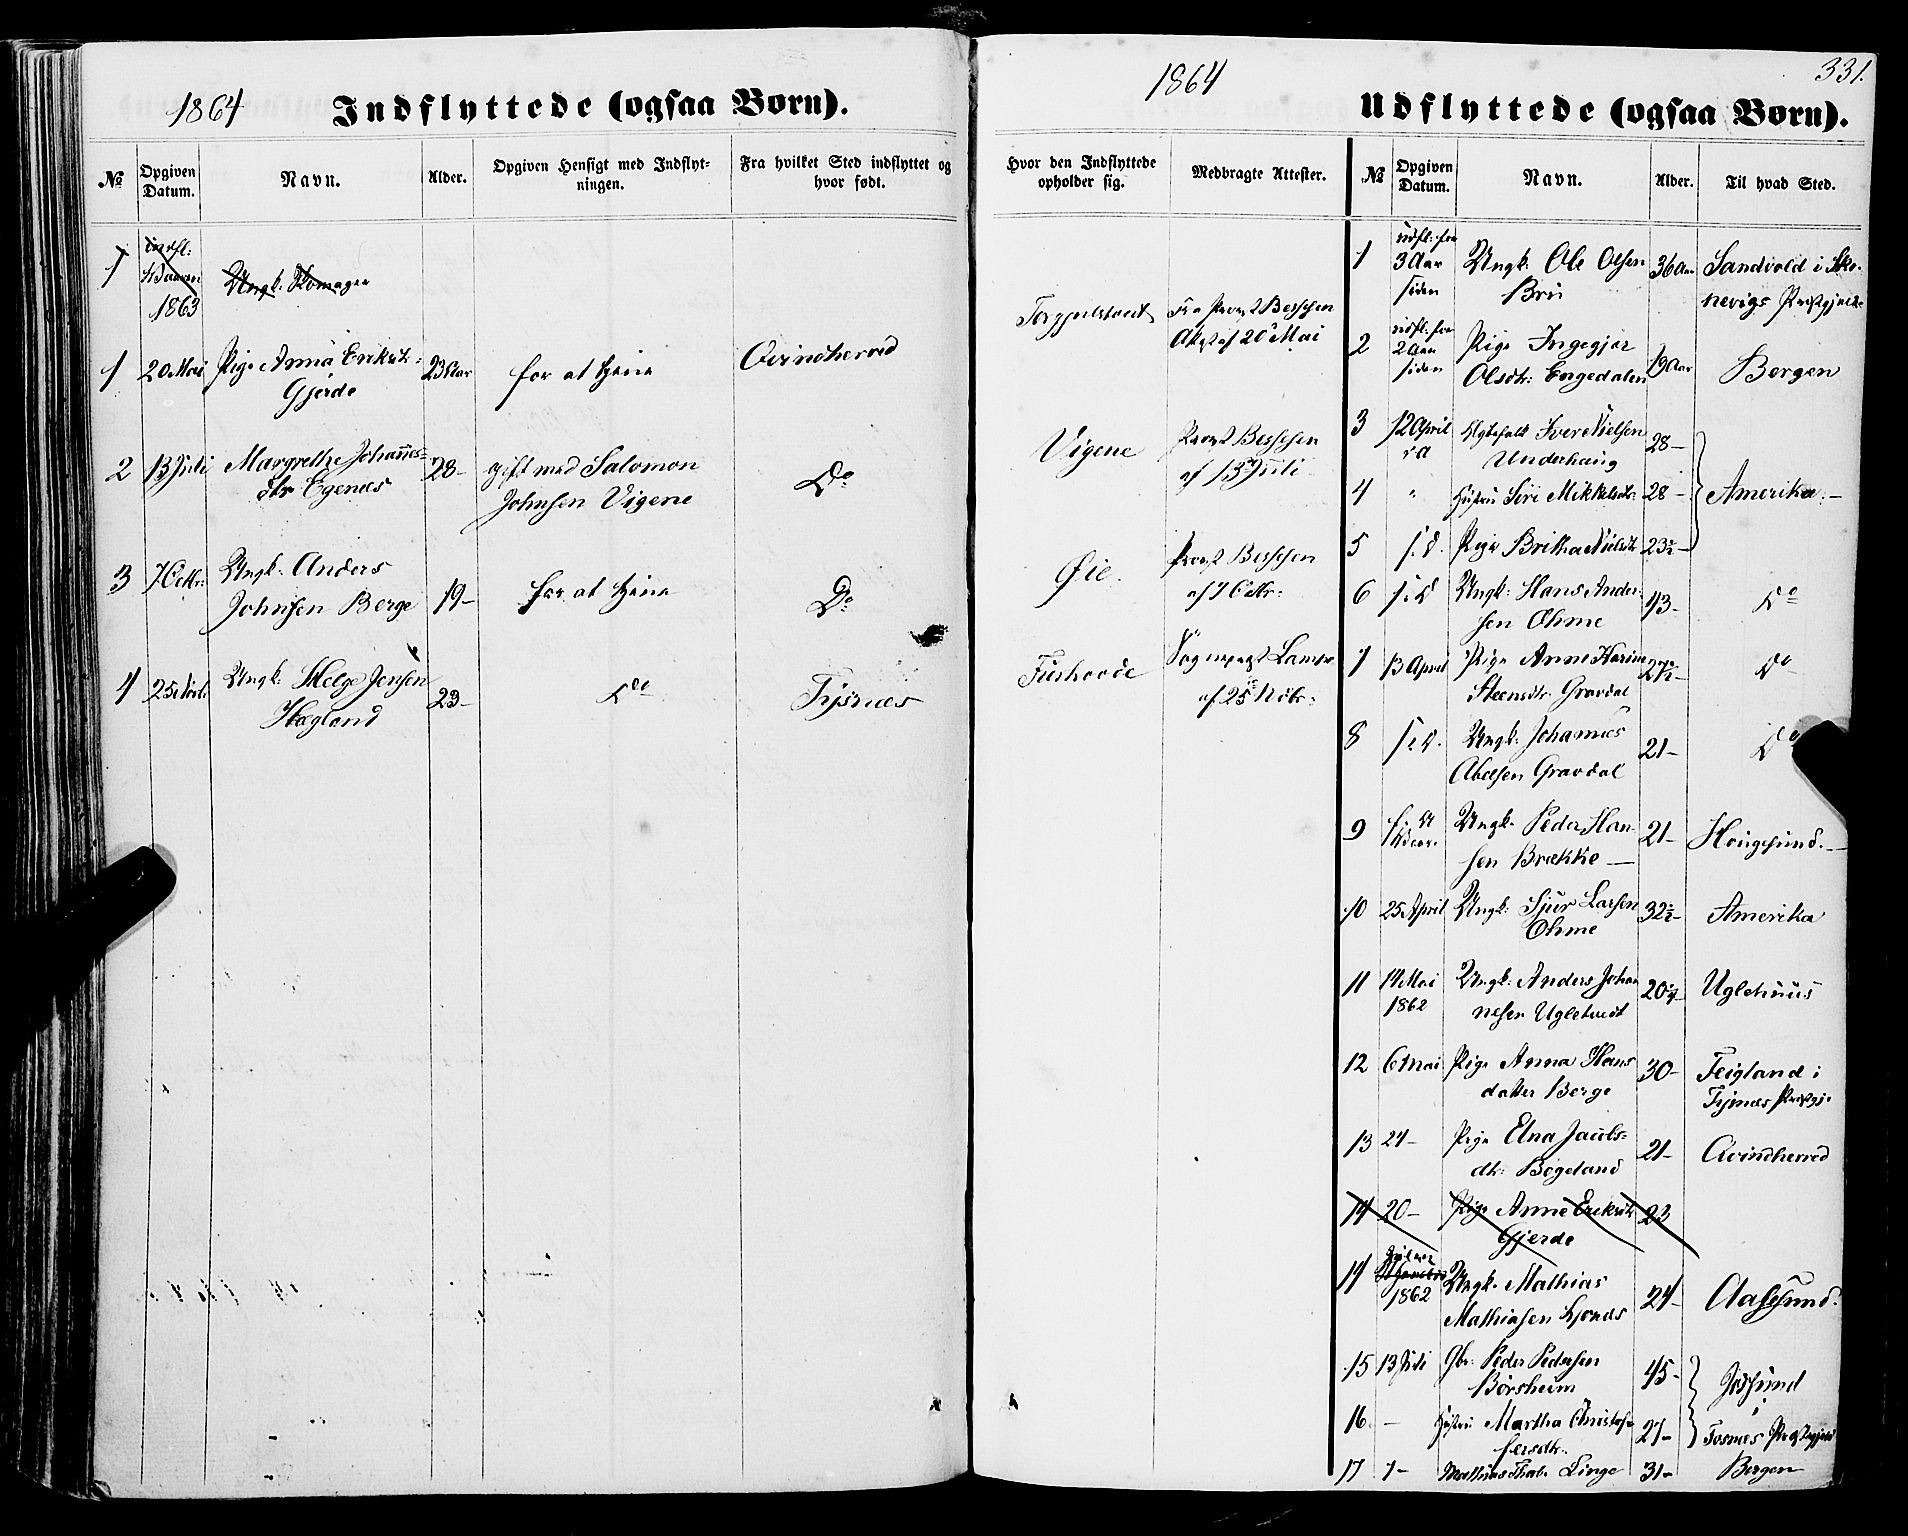 1864
Indflyttede (ogsaa Børn).
№
Opgiven Datum.
Navn.
Alder.
Opgiven Hensigt med Indflyt-
ningen.
Fra hvilket Sted indflyttet og
hvor født.
1
indfl:
1863
Ungk:
1
20 Mai
Pige Anna Eriksdtr:
Gjerde
23 Aar
for at tjene
Qvindherred
2
13 Juli
Margrethe Johannes-
dtr Egenæs
28-
gift med Salomon
Johnsen Vigene
Do
3
7 Octbr:
Ungk: Anders
Johnsen Berge
19-
for at tjene
Do
4
25 Novbr
Ungk: Helge Jensen
Hægland
23-
Do
Tysnæs
1864
331.
Udflyttede (ogsaa Børn).
Hvor den Indflyttede
opholder sig.
Medbragte Attester.
№
Opgiven Datum.
Navn.
Alder.
Til hvad Sted.
Fra Provst
Attest af 20 Mai
Vigene
Provst
af 13 Juli
Øie.
Provst
af 7 Octbr:
Sognepræst
af 25 Nvbr:
1
udfl: for
3 Aar
siden
Ungk: Ole Olsen
Bru
36 Aar
Sandvold i Ske-
nevigs Præstgjeld
2
udfl: for
2 Aar
siden
Pige Ingegjær
Olsdtr: Engedalen
19 Aar
Bergen
3
12 April
Iver Nielsen
Underhaug
28-
4
"
Hustru Siri Mikkelsdtr:
28-
Amerika.-
5
s: d.
Pige Britha Nielsdtr
23½-
6
s: d
Ungk: Hans Ander-
sen Ohme
43-
Do
7
13 April
Pige Anne Karine
Steensdtr: Gravdal
27½-
Do
8
s: d.
Ungk: Johannes
Abelsen Gravdal
21-
Do
9
Ungk. Peder Han-
sen Brække
21-
Haugesund.
10
25 April
Ungk: Sjur Larsen
Ohme
32½-
Amerika
11
14 Mai
1862
Ungk: Anders Johan
nesen Ugletvedt
20
Uglehuus
12
6 Mai
Pige Anna Hans
datter Berge
30-
Feigland i
Tysnæs Præstgj:
13
24-
Pige Elna Jacobs-
dtr: Bøgeland
21-
Qvindherred
14
20-
Pige Anne Eriksdtr
Gjerde
23
14
1862
Ungk. Mathias
Mathiasen
24-
Aalesund.
15
13 Juli
Gbr: Peder Pedersen
Børsheim
45-
16
-
Hustru Martha Christof-
fersdtr.
27-
Præstegjeld
17
7-
Linge
31-
Bergen